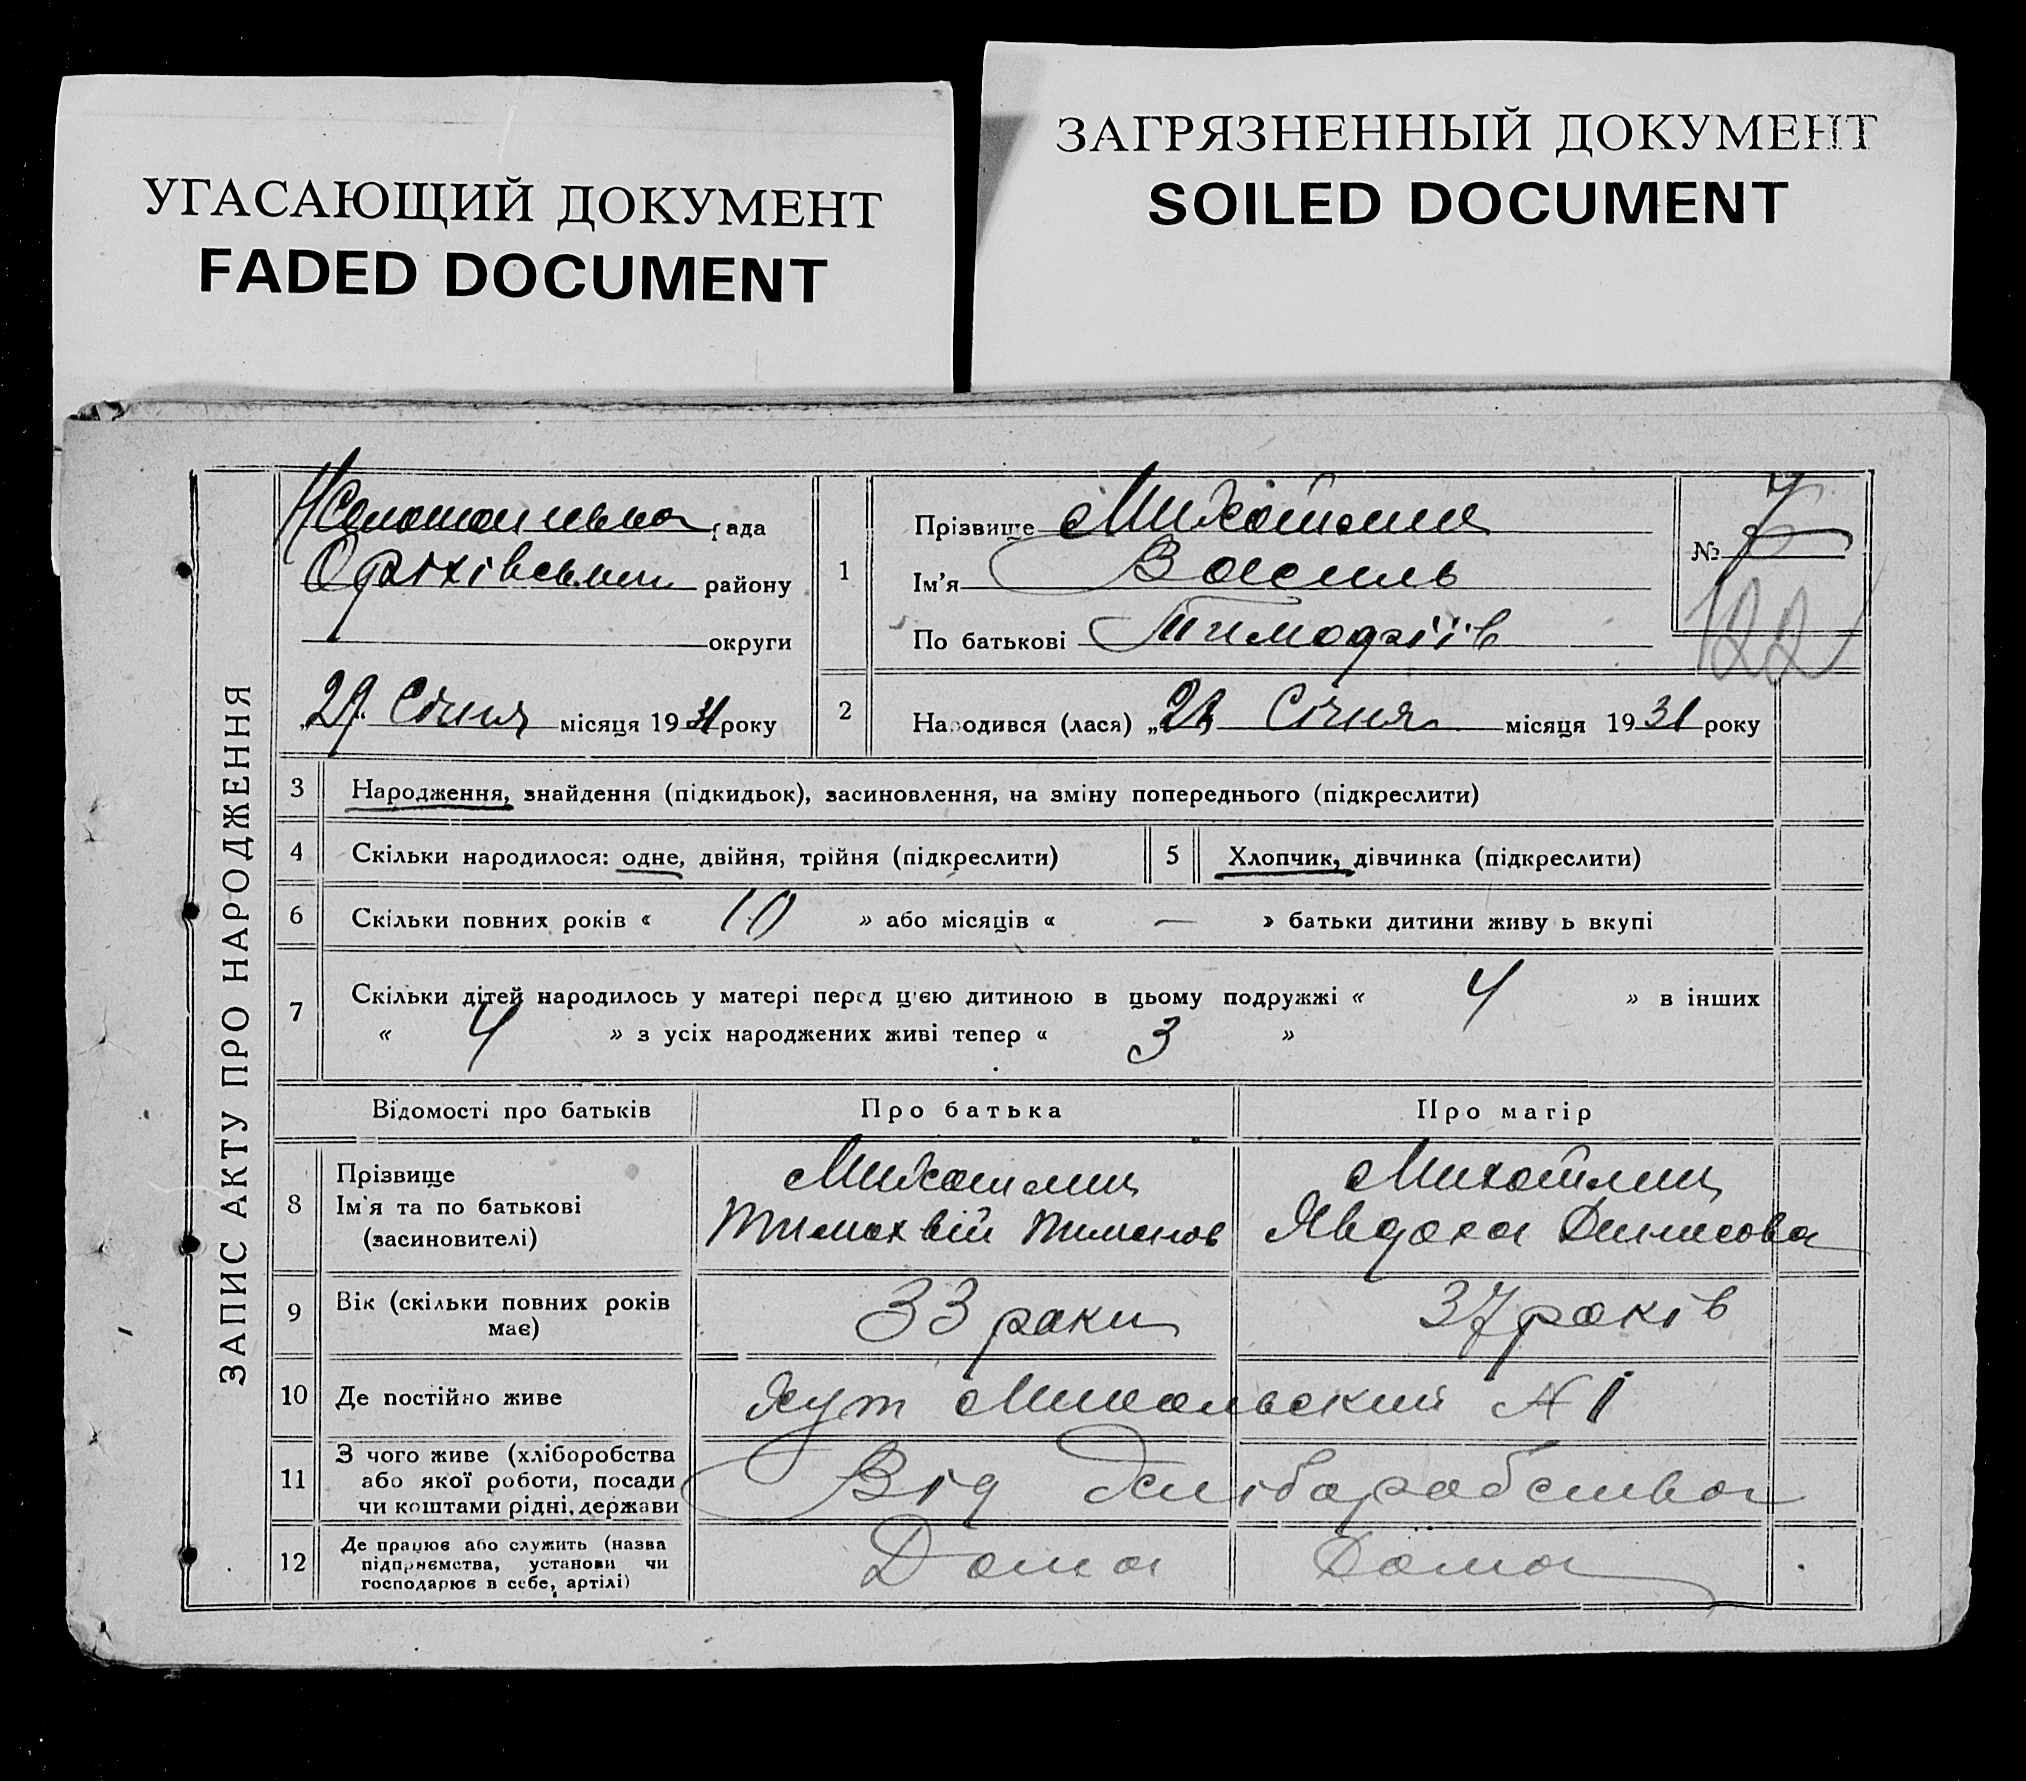 УГАСАЮЩИЙ ДОКУМЕНТ
FADED DOCUMENT
ЗАГРЯЗНЕННЫЙ ДОКУМЕНТ
SOILED DOCUMENT
ЗАПИС АКТУ ПРО НАРОДЖЕННЯ
рада
Оріхівський району
округи
„29“ Січня місяця 1931 року
1
Прізвище
Ім'я Василь
По батькові Тимофіїв
№ 7
122
2
Народився (лася) „ Січня місяця 1931 року
3 Народження, знайдення (підкидьок), засиновлення, на зміну попереднього (підкреслити)
4 Скільки народилося: одне, двійня, трійня (підкреслити)
5 Хлопчик, дівчинка (підкреслити)
6 Скільки повних років « 10 » або місяців « — » батьки дитини живуть вкупі
7 Скільки дітей народилось у матері перед цією дитиною в цьому подружжі « 4 » в інших
« 4 » з усіх народжених живі тепер « 3 »
Відомості про батьків Про батька Про матір
8 Прізвище
Ім'я та по батькові
(засиновителі)
Тимохвій Пименов
Явдоха Денисова
9 Вік (скільки повних років
має)
33 роки 37 років
10 Де постійно живе Хут Микольский № 1
11 З чого живе (хліборобства
або якої роботи, посади
чи коштами рідні, держави
Від хліборобства
12 Де працює або служить (назва
підприємства, установи чи
господарює в себе, артілі)
Дома Дома